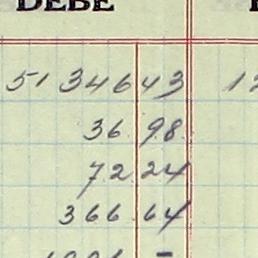 DEBE
51346 43 12
36 98
72 24
366 64